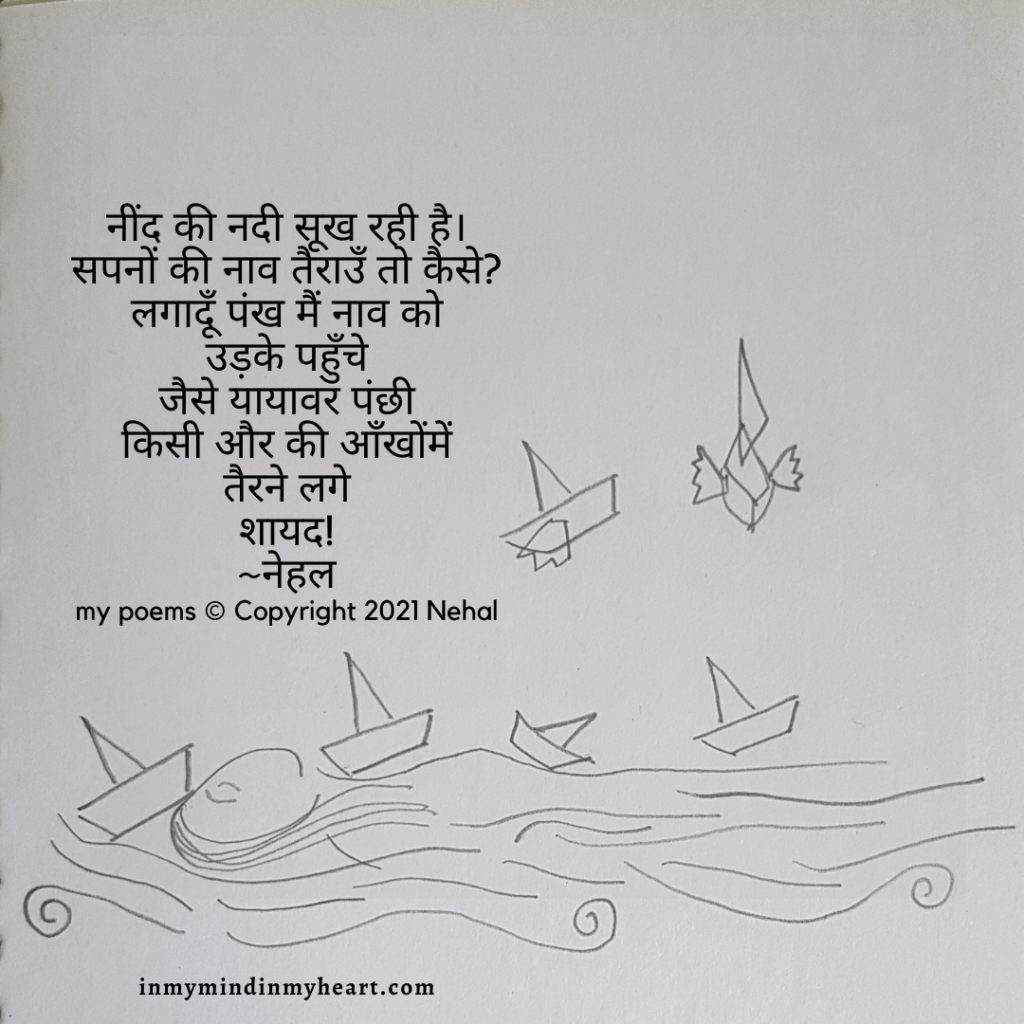 नींद की नदी सूख रही है।
सपनों की नाव तैराउँ तो कैसे?
लगादूँ पंख मैं नाव को
उड़के पहुँचे
जैसे यायावर पंछी
किसी और की आँखोंमें
तैरने लगे
शायद!
~नेहल
my poems © Copyright 2021 Nehal
inmymindinmyheart.com